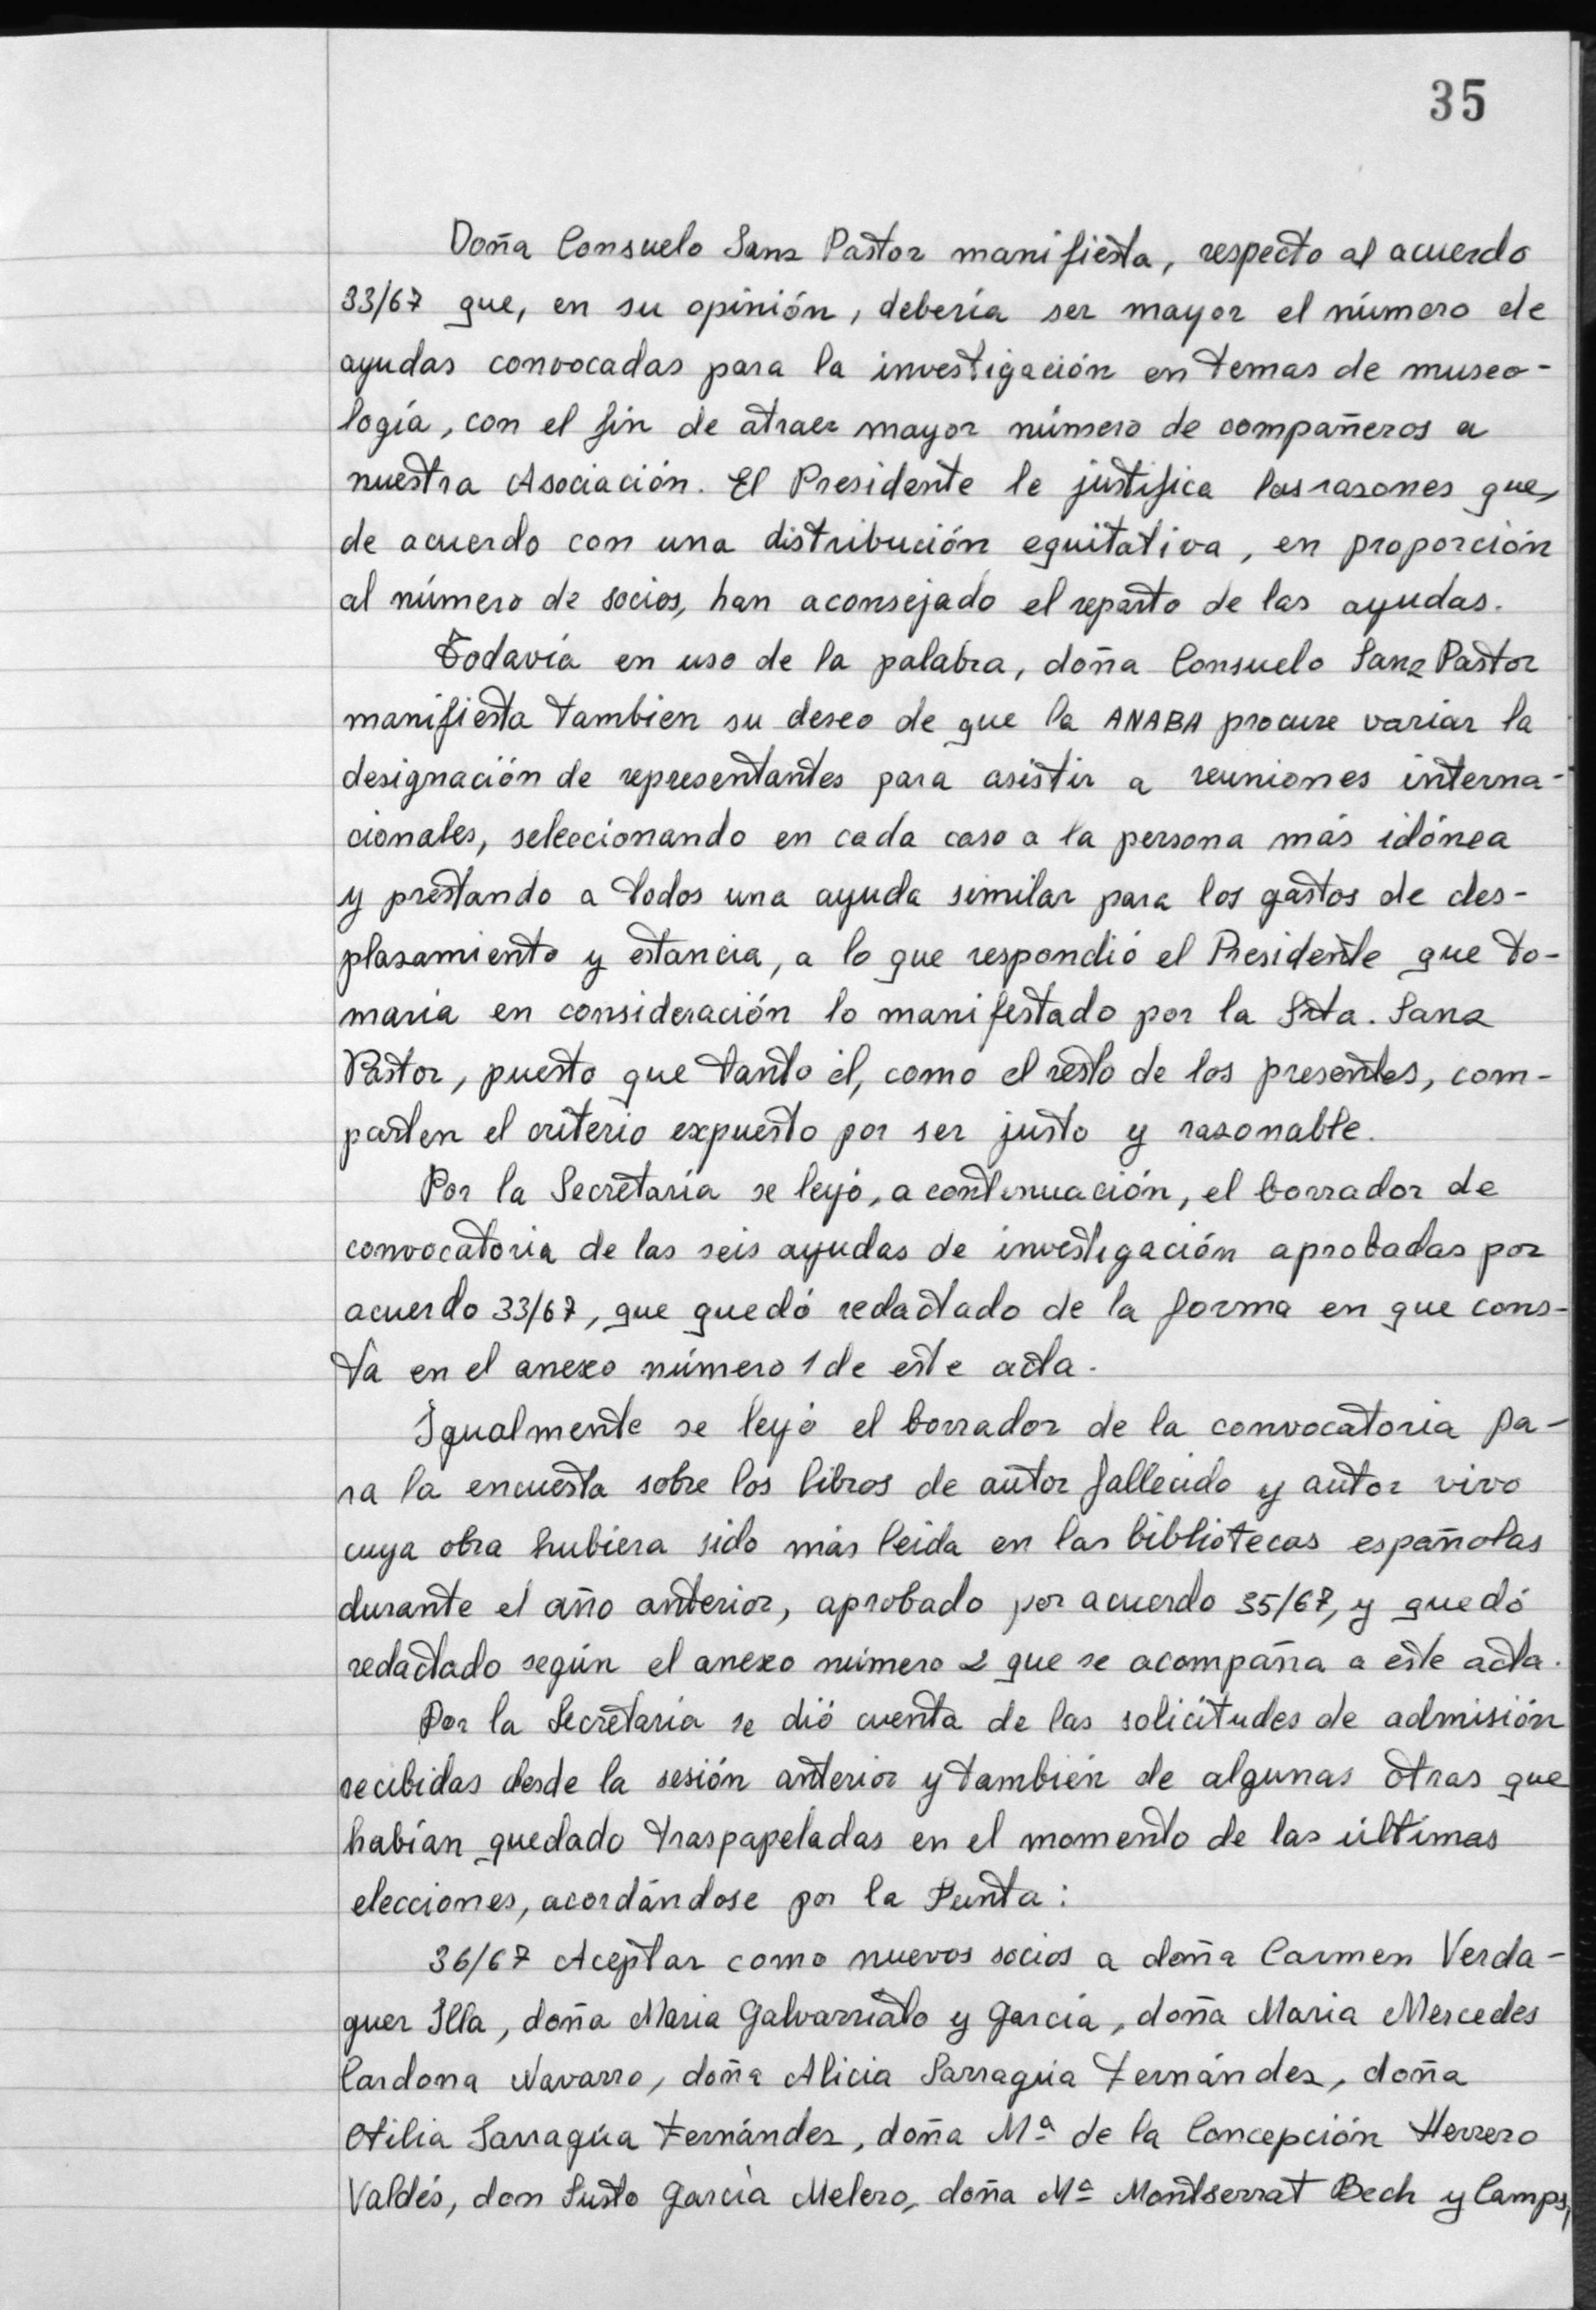 35
Doña Consuelo Sanz Pastor manifiesta, respecto al acuerdo
33/67 que, en su opinión, debería ser mayor el número de
ayudas convocadas para la investigación en temas de museo-
logía, con el fin de atraer mayor número de compañeros a
nuestra Asociación. El Presidente le justifica las razones que,
de acuerdo con una distribución equitativa, en proporción
al número de socios, han aconsejado el reparto de las ayudas.
Todavía en uso de la palabra, doña Consuelo Sanz Pastor
manifiesta tambien su deseo de que la ANABA procure variar la
designación de representantes para asistir a reuniones interna-
cionales, seleccionando en cada caso a la persona más idónea
y prestando a todos una ayuda similar para los gastos de des-
plazamiento y estancia, a lo que respondió el Presidente que to-
maría en consideración lo manifestado por la Srta. Sanz
Pastor, puesto que tanto él, como el resto de los presentes, com-
parten el criterio expuesto por ser justo y razonable.
Por la Secretaría se leyó, a continuación, el borrador de
convocatoria de las seis ayudas de investigación aprobadas por
acuerdo 33/67, que quedó redactado de la forma en que cons-
ta en el anexo número 1 de este acta.
Igualmente se leyó el borrador de la convocatoria pa-
ra la encuesta sobre los libros de autor fallecido y autor vivo
cuya obra hubiera sido más leida en las bibliotecas españolas
durante el año anterior, aprobado por acuerdo 35/67, y quedó
redactado según el anexo número 2 que se acompaña a este acta.
Por la Secretaría se dió cuenta de las solicitudes de admisión
recibidas desde la sesión anterior y también de algunas otras que
habían quedado traspapeladas en el momento de las últimas
elecciones, acordándose por la Junta:
36/67 Aceptar como nuevos socios a doña Carmen Verda-
guer Illa, doña Maria Galvarriato y García, doña Maria Mercedes
Cardona Navarro, doña Alicia Sarragúa Fernández, doña
Otilia Sarragúa Fernández, doña Mª de la Concepción Herrero
Valdés, don Justo García Melero, doña Mª Montserrat Bech y Camps,